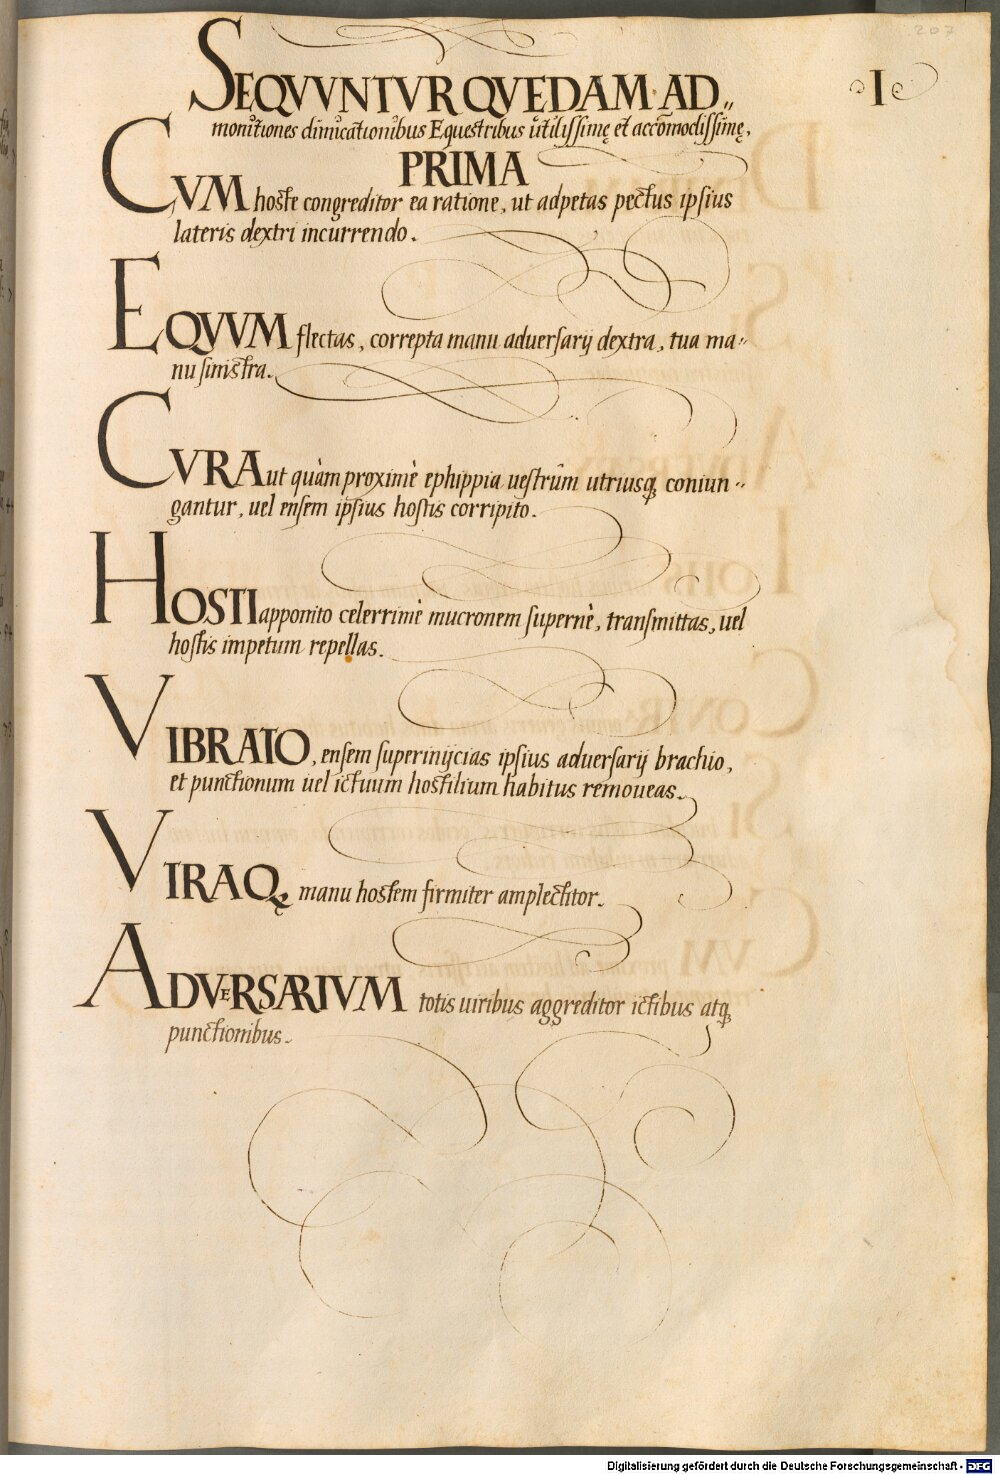 207
I
SEQVVNTVR QVEDAM AD„
monitiones dimicationibus Equestribus utilissimę et accōmodissimę.
PRIMA
CVM hoste congreditor ea ratione, ut adpetas pectus ipsius
lateris dextri incurrendo.
EQVVM flectas, correpta manu adversarij dextra, tua ma„
nu sinistra.
CVRA ut quàm proximè ephippia uestrûm utriusqꝫ coniun„
gantur, uel ensem ipsius hostis corripito.
HOSTI apponito celerrimè mucronem supernè, transmittas, uel
hostis impetum repellas.
VIBRATO, ensem superinijcias ipsius adversarij brachio,
et punctionum uel ictuum hostilium habitus remoueas.
VIRAQꝫ manu hostem firmiter amplectitor.
ADVERSARIVM totis uiribus aggreditor ictibus atqꝫ
punctionibus.
Digitalisierung gefördert durch die Deutsche Forschungsgemeinschaft - DFG